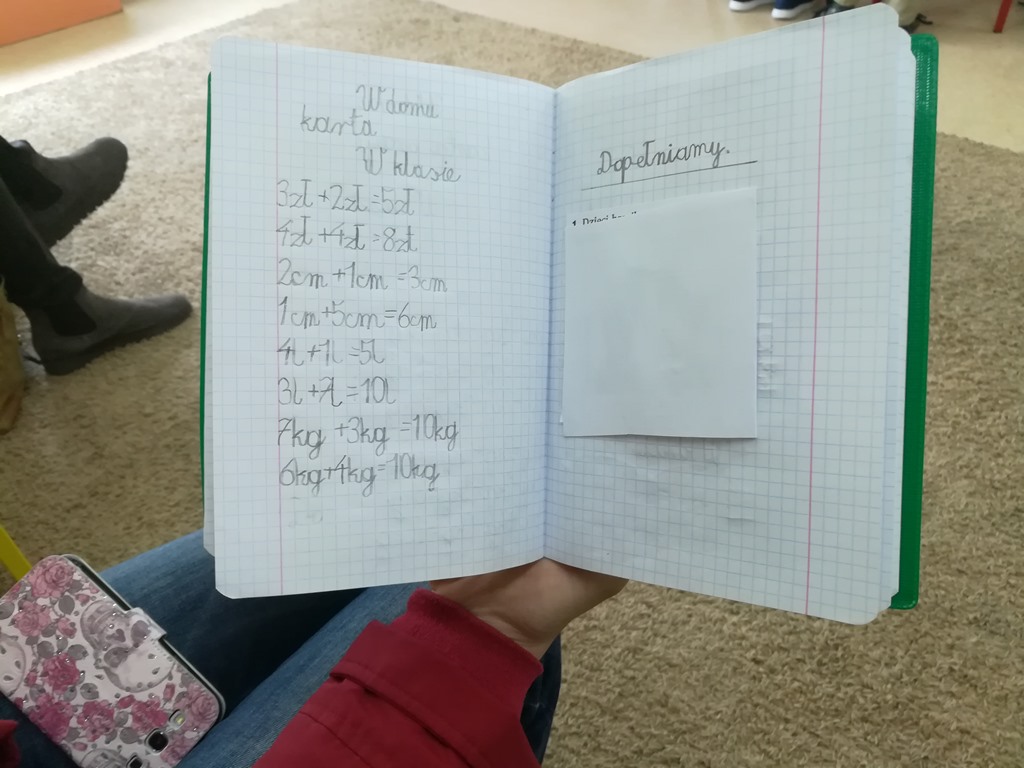 W domu
karta
W klasie
3zł+2zł=5zł
4zł+4zł=8zł
2cm+1cm=3cm
1cm+5cm=6cm
4l+1l=5l
3l+7l=10l
7kg+3kg=10kg
6kg+4kg=10kg
Dopełniamy.